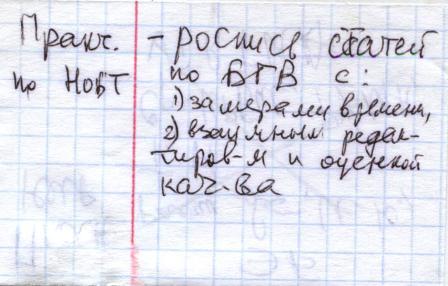 Практ. – роспись статей
по НОБТ по БГВ с:
1) замерами времени,
2) взаимным редак-
тиров-м и оценкой
кач-ва